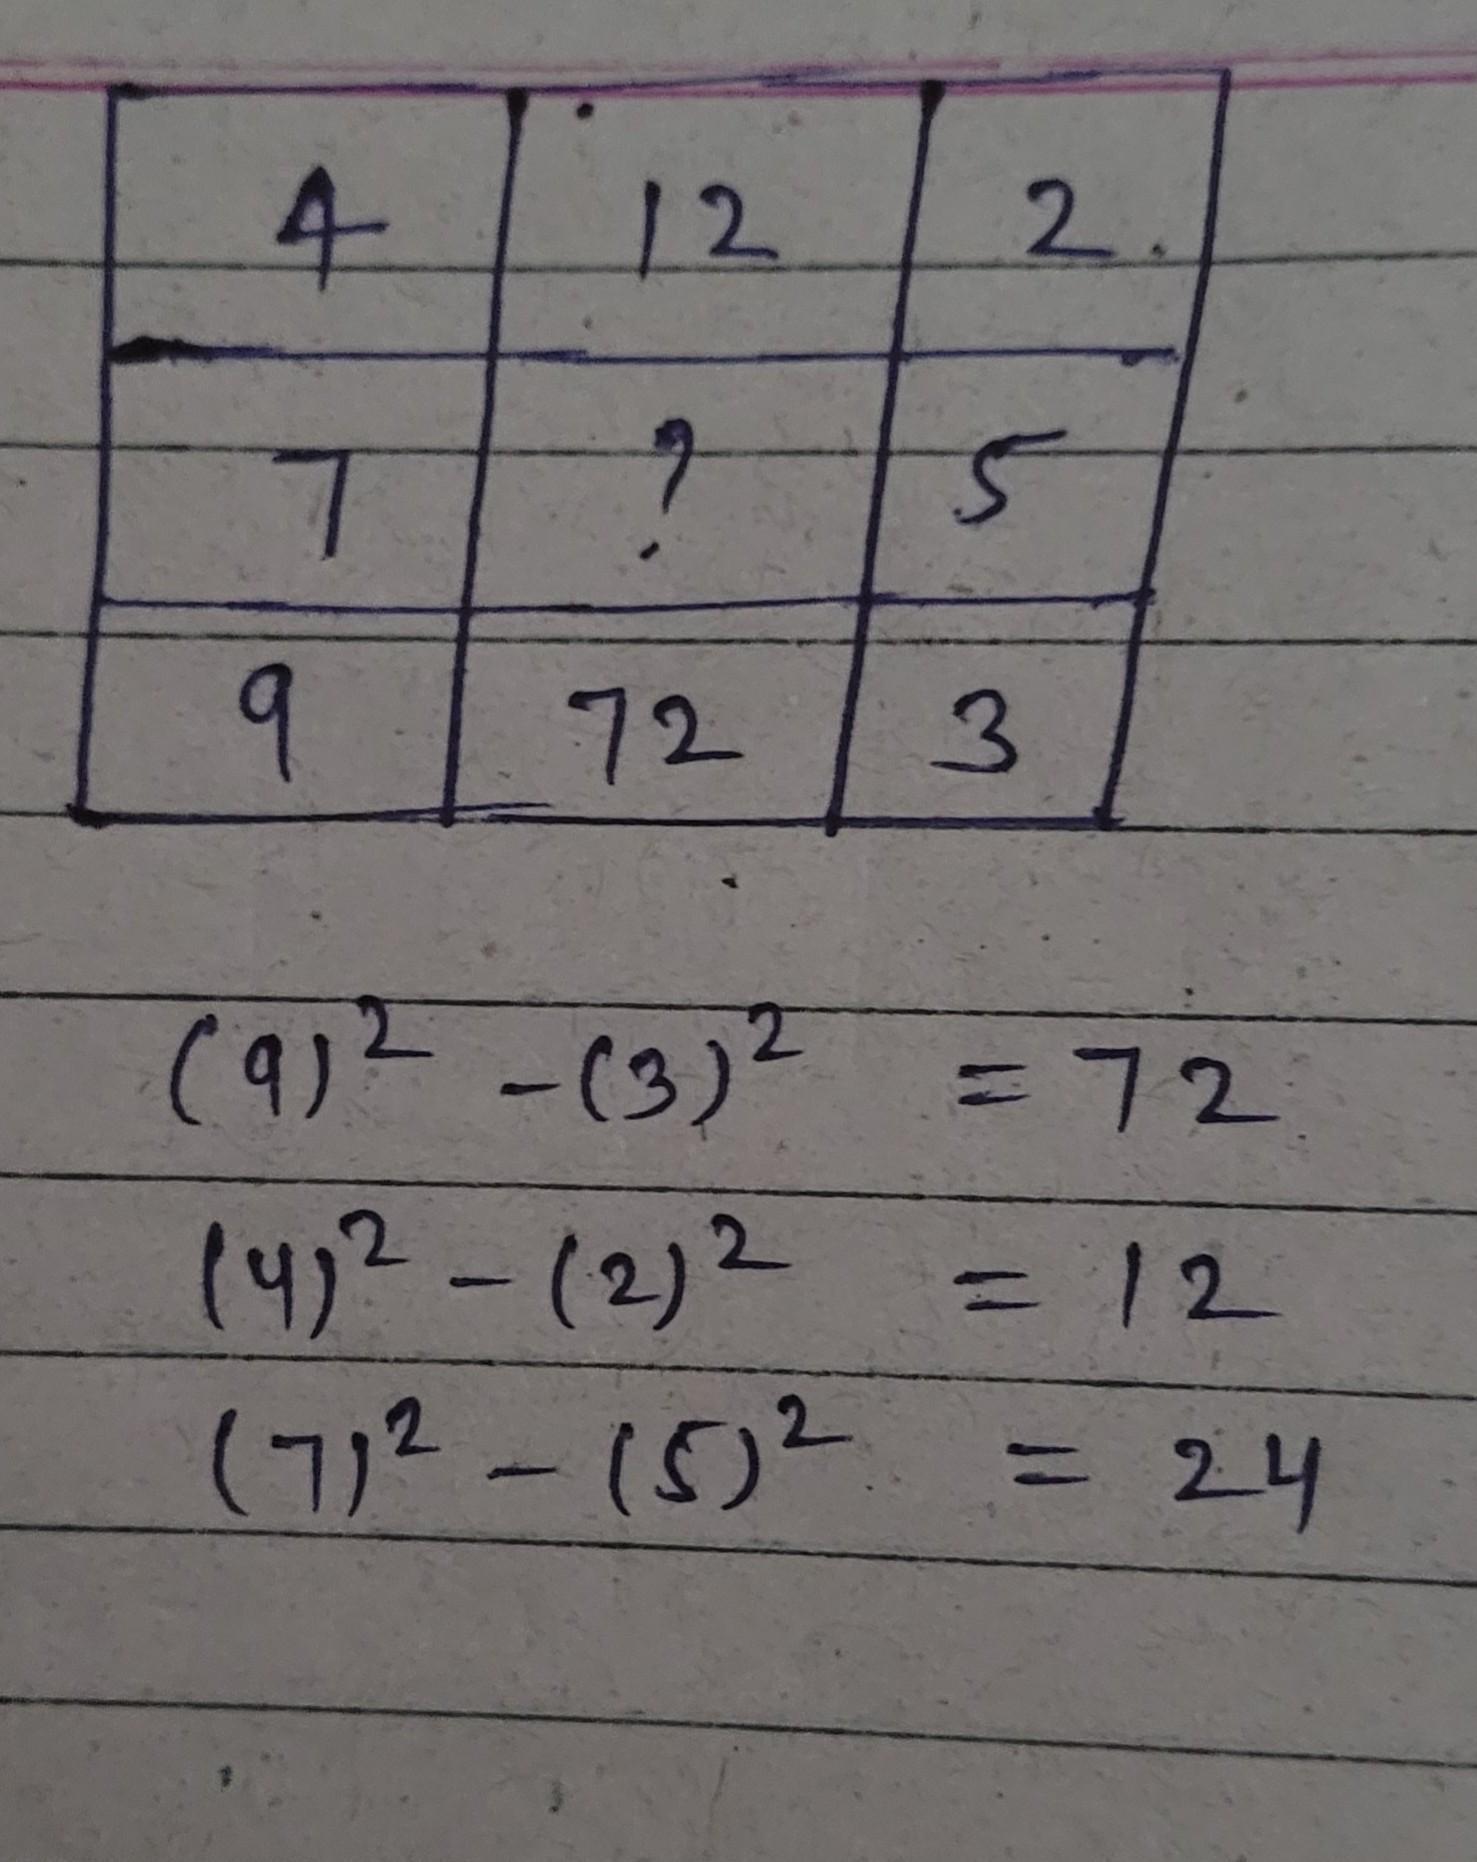 4 12 2
7 ? 5
9 72 3
(9)² - (3)² = 72
(4)² - (2)² = 12
(7)² - (5)² = 24